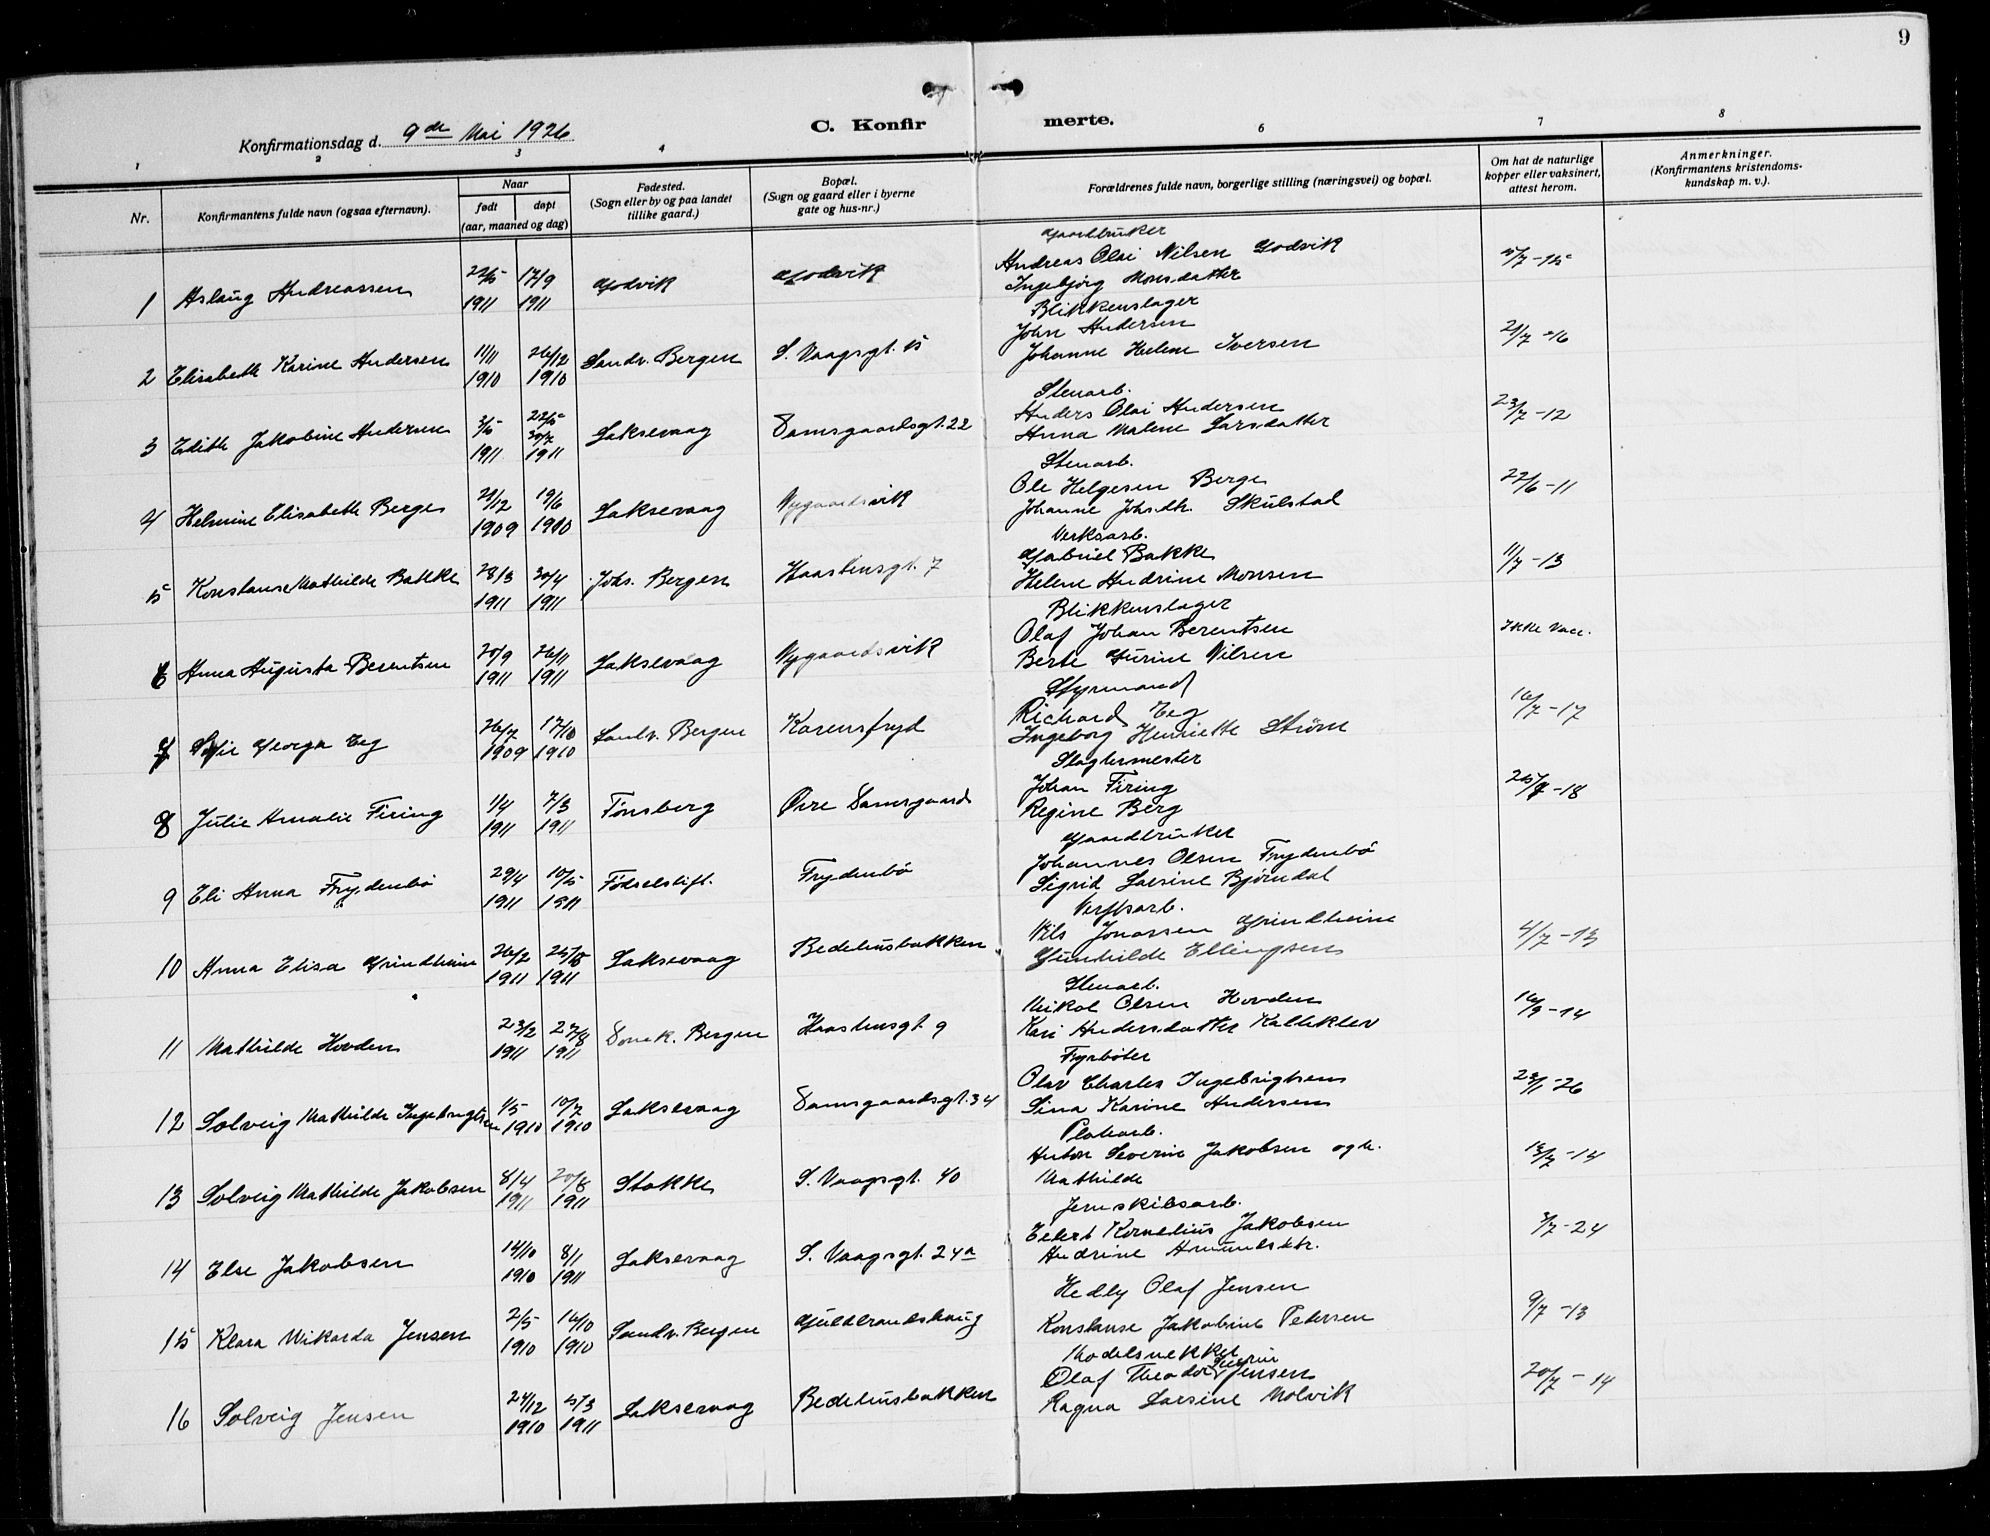 9
Konfirmationsdag d. 9de Mai 1926
C. Konfirmerte.
1 2 3 4 6 7 8
Nr.
Konfirmantens fulde navn (ogsaa efternavn).
Naar
født døpt
(aar, maaned og dag)
Fødested.
(Sogn eller by og paa landet
tillike gaard.)
Bopæl.
(Sogn og gaard eller i byerne
gate og hus-nr.)
Forældrenes fulde navn, borgerlige stilling (næringsvei) og bopæl.
Om hat de naturlige
kopper eller vaksinert,
attest herom.
Anmerkninger.
(Konfirmantens kristendoms-
kundskap m. v.).
Gaardbruker
1 Aslaug Andreassen 22/5 1911 17/9 1911 Godvik Godvik Andreas Olai Nilsen Godvik 5/7-15
Ingebjørg Monsdatter
Blikkenslager
2 Elisabeth Karine Andersen 11/11 1910 26/12 1910 Sandv. Bergen S. Vaagsgt. 15 John Andersen 21/7-16
Johanne Helene Iversen
Stenarb.
3 Edith Jakobine Andersen 3/5 1911 30/7 1911 Laksevaag Damsgaardsgt. 22 Anders Olai Andersen 23/7-12
Anna Malene Larsdatter
Stenarb.
4 Helmine Elisabeth Berge 21/12 1909 19/6 1910 Laksevaag Nygaardsvik Ole Helgesen Berge 22/6-11
Johanne Johsdtr. Skulstad
Verksarb.
5 Konstanse Mathilde Bakke 28/3 1911 30/4 1911 Johs. Bergen Haastensgt. 7 Gabriel Bakke 11/7-13
Helene Andrine Monsen
Blikkenslager
6 Anna Augusta Berentsen 20/9 1911 26/11 1911 Laksevaag Nygaardsvik Olaf Johan Berentsen Ikke Vacc.
Berte Gurine Nilsen
Styrmand
7 Sofie Georga Eeg 26/7 1909 17/10 1910 Sandv. Bergen Karensfryd Richard Eeg 16/7-17
Ingeborg Henriette Strøm
Slagtermester
8 Julie Amalie Firing 1/4 1911 7/3 1911 Tønsberg Øvre Damsgaard Johan Firing 25/7-18
Regine Berg
Gaardbruker
9 Eli Anna Frydenbø 29/4 1911 10/5 1911 Fødselstift. Frydenbø Johannes Olsen Frydenbø
Sigrid Larsine Bjørndal
Verftsarb.
10 Anna Elisa Grindheim 26/2 1911 1911 Laksevaag Bedehusbakken Nils Jonassen Grindheim 4/7-13
Gunhilde Ellingsen
Stenarb.
11 Mathilde Hovden 23/2 1911 27/8 1911 Domk. Bergen Haastensgt. 9 Nikol Olsen Hovden 16/9-14
Kari Andersdatter Kalleklev
Fyrbøter
12 Solveig Mathilde Ingebrigtsen 1/5 1910 10/7 1910 Laksevaag Damsgaardsgt. 34 Olav Charles Ingebrigtsen 23/1-26
Sina Karine Andersen
Platearb.
13 Solveig Mathilde Jakobsen 8/4 1911 20/8 1911 Stokke S. Vaagsgt. 40 Anton Severin Jakobsen og h. 13/7-14
Mathilde
Jernskibsarb.
14 Else Jakobsen 14/10 1910 8/1 1911 Laksevaag S. Vaagsgt. 24a Eilert Kornelius Jakobsen 3/7-24
Andrine Amundsdtr.
Hedly Olaf Jensen
15 Klara Wikarda Jensen 2/5 1910 16/10 1910 Sandv. Bergen Guldbrandshaug Konstanse Jakobine Petersen 9/7-13
Modelsnekker
16 Solveig Jensen 24/12 1910 5/3 1911 Laksevaag Bedehusbakken Olaf Theodor Severin Jensen 20/7-14
Ragna Larsine Molvik